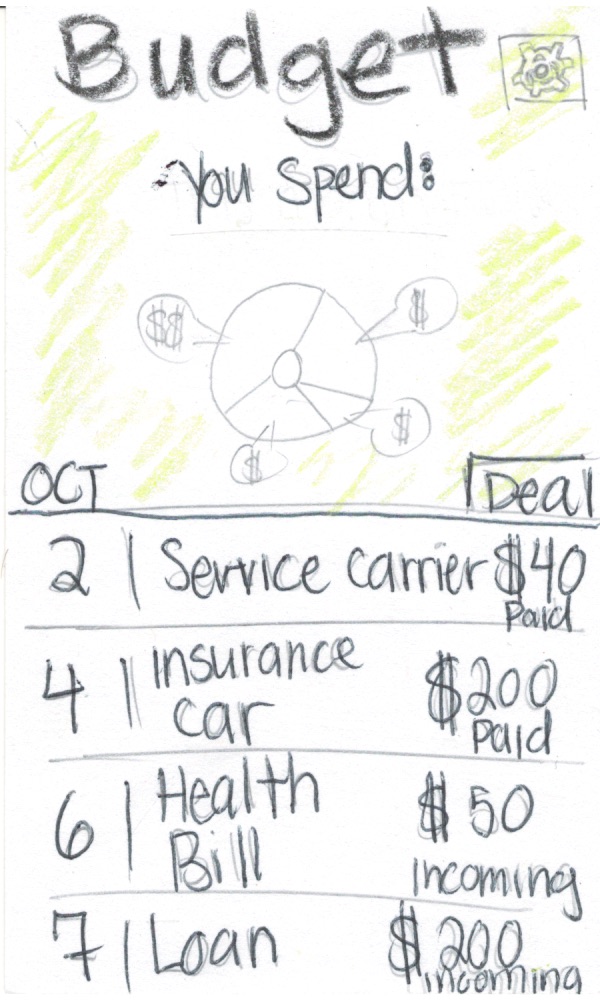 Budget
You Spend:
$$
$
$
$
OCT Deal
2 | Service Carrier $40
Paid
4 | insurance
car $200
Paid
6 | Health
Bill $50
incoming
7 | Loan $200
incoming